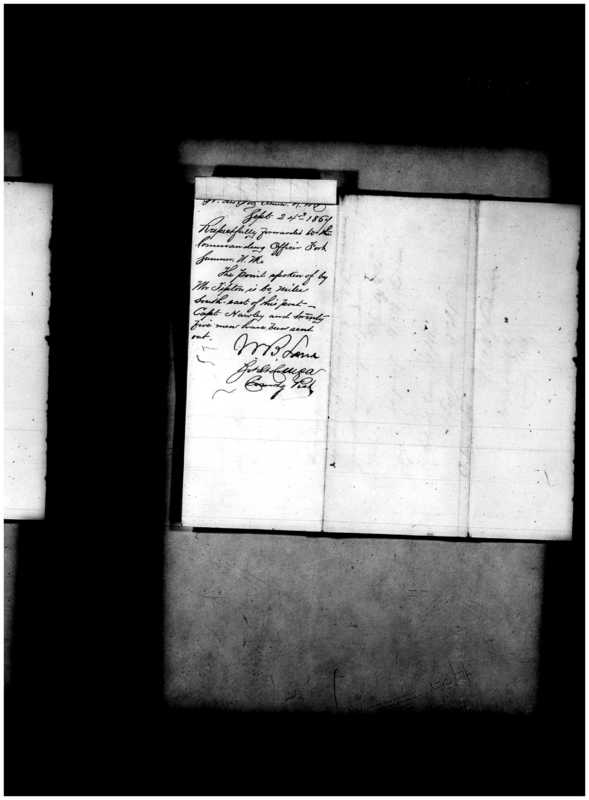 Sept 24th 1867
Respectfully forwarded to the
Commanding Officer Fort
Sumner N. Mx
The point spoken of by
Mr Tipton is 60 miles
South-east of this post—
Capt Hawley and twenty
five men have been sent
out.
W B. Lane
Comdg Post